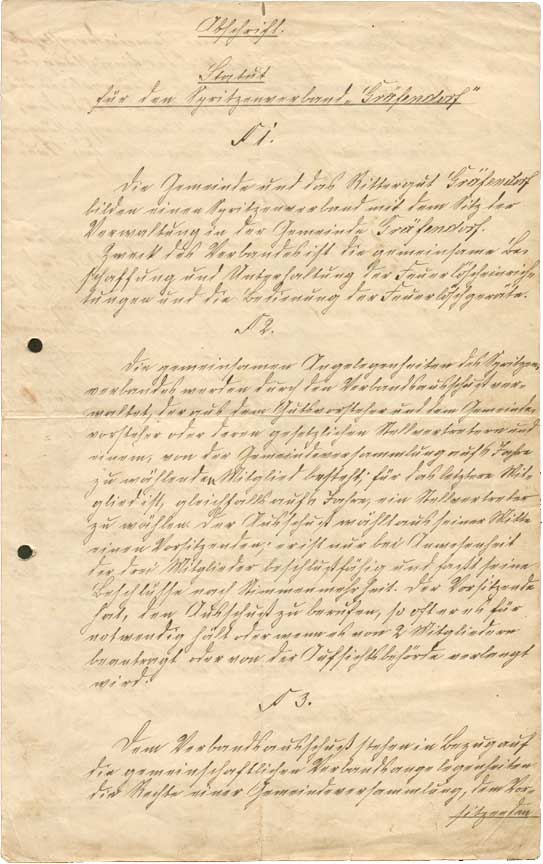 Abschrift.
Statut
für den Spritzenverband „Gräfendorf"
§ 1.
Die Gemeinde und das Rittergut Gräfendorf
bilden einen Spritzenverband mit dem Sitz der
Verwaltung in der Gemeinde Gräfendorf.
Zweck des Verbandes ist die gemeinsame Be-
schaffung und Unterhaltung der Feuerlöscheinrich-
tungen und die Bedienung der Feuerlöschgeräte.
§ 2.
Die gemeinsamen Angelegenheiten des Spritzen-
verbandes werden durch den Verbandsausschuß ver-
waltet, der aus dem Gutsvorsteher und dem Gemeinde-
vorsteher oder deren gesetzlichen Stellvertretern und
einem, von der Gemeindeversammlung auf Jahre
zu wählenden Mitglied besteht; für das letztere Mit-
glied ist, gleichfalls auf Jahre, ein Stellvertreter
zu wählen. Der Ausschuß wählt aus seiner Mitte
einen Vorsitzenden; er ist nur bei Anwesenheit
der drei Mitglieder beschlußfähig und faßt seine
Beschlüsse nach Stimmenmehrheit. Der Vorsitzende
hat, den Ausschuß zu berufen, so oft er es für
notwendig hält oder wenn es von 2 Mitgliedern
beantragt oder von der Aufsichtsbehörde verlangt
wird.
§ 3.
Dem Verbandsausschuß stehen in Bezug auf
die gemeinschaftlichen Verbandsangelegenheiten
die Rechte einer Gemeindeversammlung, dem Vor-
sitzenden